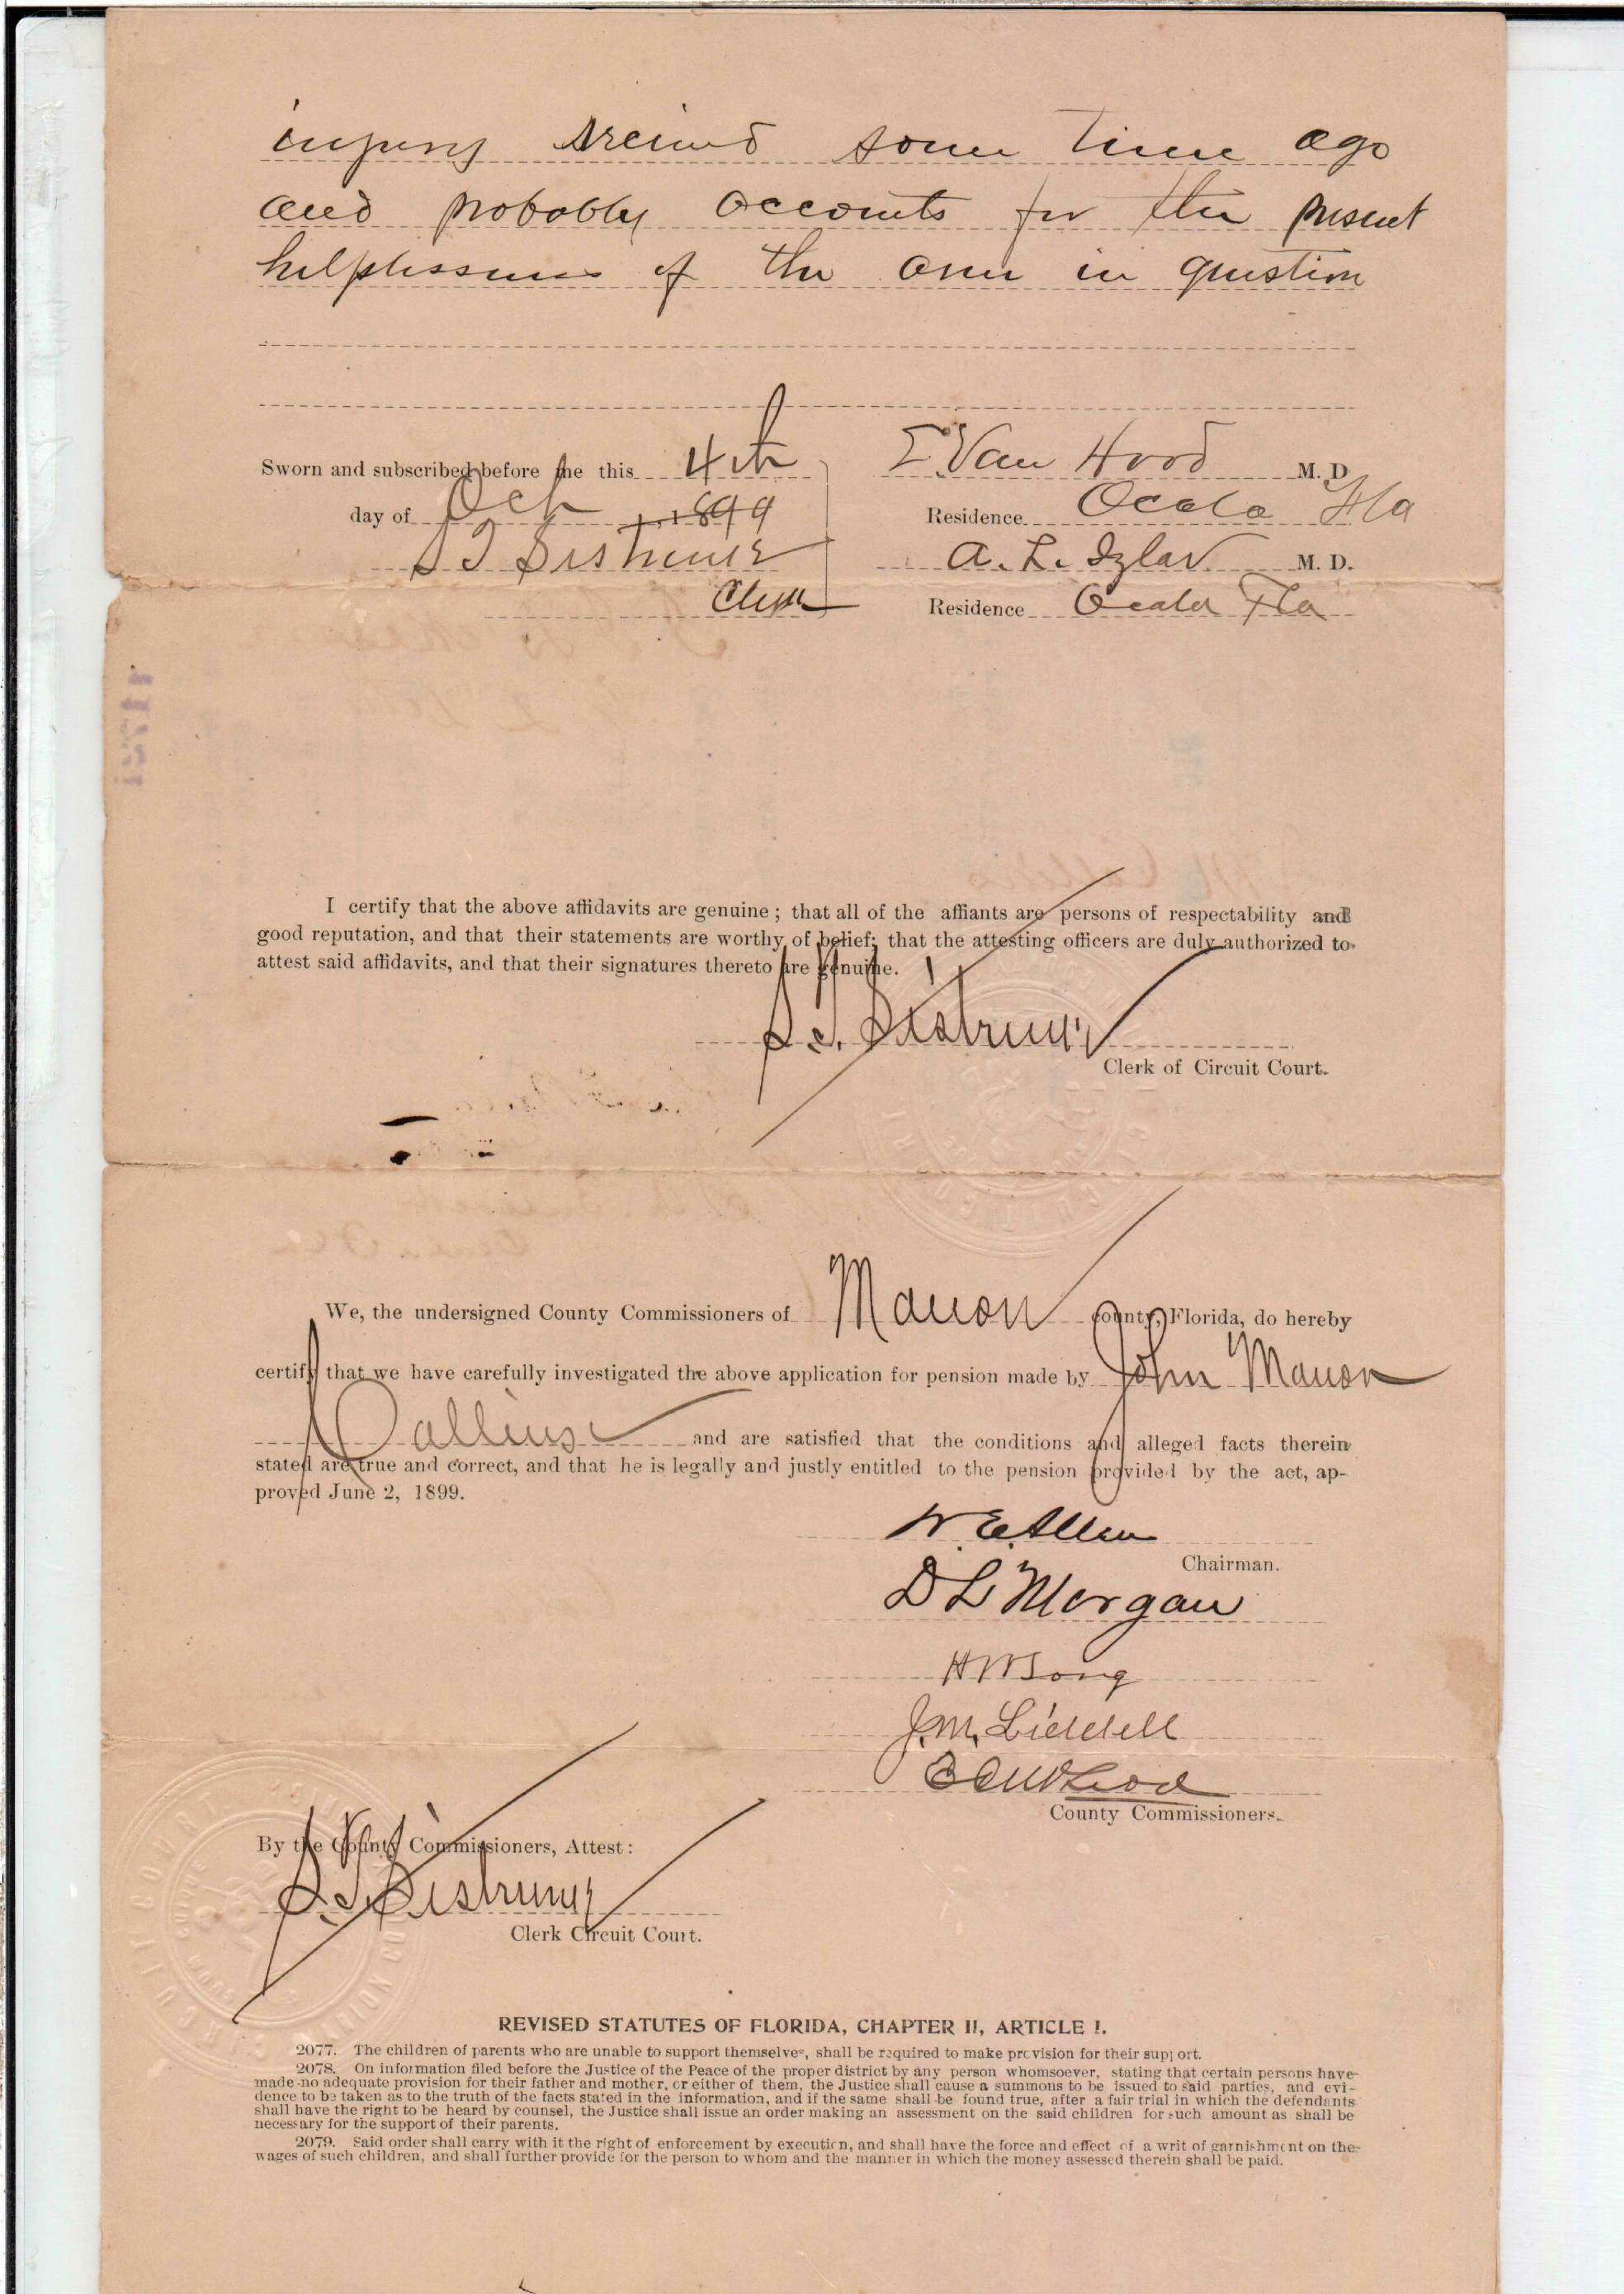 injury received some time ago
and probably accounts for the present
helplessness of the arm in question
Sworn and subscribed before me this 4th
day of Oct 1899
S T Sistrunk
Clerk
E Van Hood M. D.
Residence Ocala Fla
A. L. Izlar M. D.
Residence Ocala Fla
I certify that the above affidavits are genuine; that all of the affiants are persons of respectability and
good reputation, and that their statements are worthy of belief; that the attesting officers are duly authorized to
attest said affidavits, and that their signatures thereto are genuine.
S. T. Sistrunk
Clerk of Circuit Court.
We, the undersigned County Commissioners of Marion County, Florida, do hereby
certify that we have carefully investigated the above application for pension made by John Marion
Callins and are satisfied that the conditions and alleged facts therein
stated are true and correct, and that he is legally and justly entitled to the pension provided by the act, ap-
proved June 2, 1899.
W. E. Allen
Chairman.
D L Morgan
H W Long
J. M. Liddell
McLeod
County Commissioners.
By the County Commissioners, Attest:
S. T. Sistrunk
Clerk Circuit Court.
REVISED STATUTES OF FLORIDA, CHAPTER II, ARTICLE I.
2077. The children of parents who are unable to support themselves, shall be required to make provision for their support.
2078. On information filed before the Justice of the Peace of the proper district by any person whomsoever, stating that certain persons have
made no adequate provision for their father and mother, or either of them, the Justice shall cause a summons to be issued to said parties, and evi-
dence to be taken as to the truth of the facts stated in the information, and if the same shall be found true, after a fair trial in which the defendants
shall have the right to be heard by counsel, the Justice shall issue an order making an assessment on the said children for such amount as shall be
necessary for the support of their parents.
2079. Said order shall carry with it the right of enforcement by execution, and shall have the force and effect of a writ of garnishment on the
wages of such children, and shall further provide for the person to whom and the manner in which the money assessed therein shall be paid.